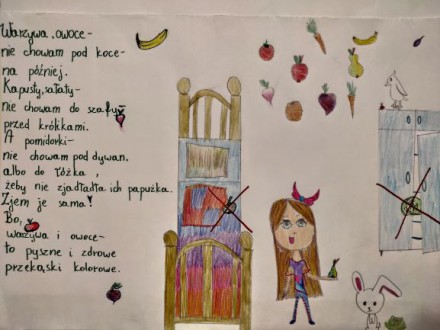 Warzywa, owoce-
nie chowam pod koce-
na później.
Kapusty, sałaty-
nie chowam do szafy
przed królikami.
A pomidorki-
nie chowam pod dywan,
albo do łóżka,
żeby nie zjadłała ich papużka.
Zjem je sama!
Bo,
warzywa i owoce-
to pyszne i zdrowe
przekąski kolorowe.